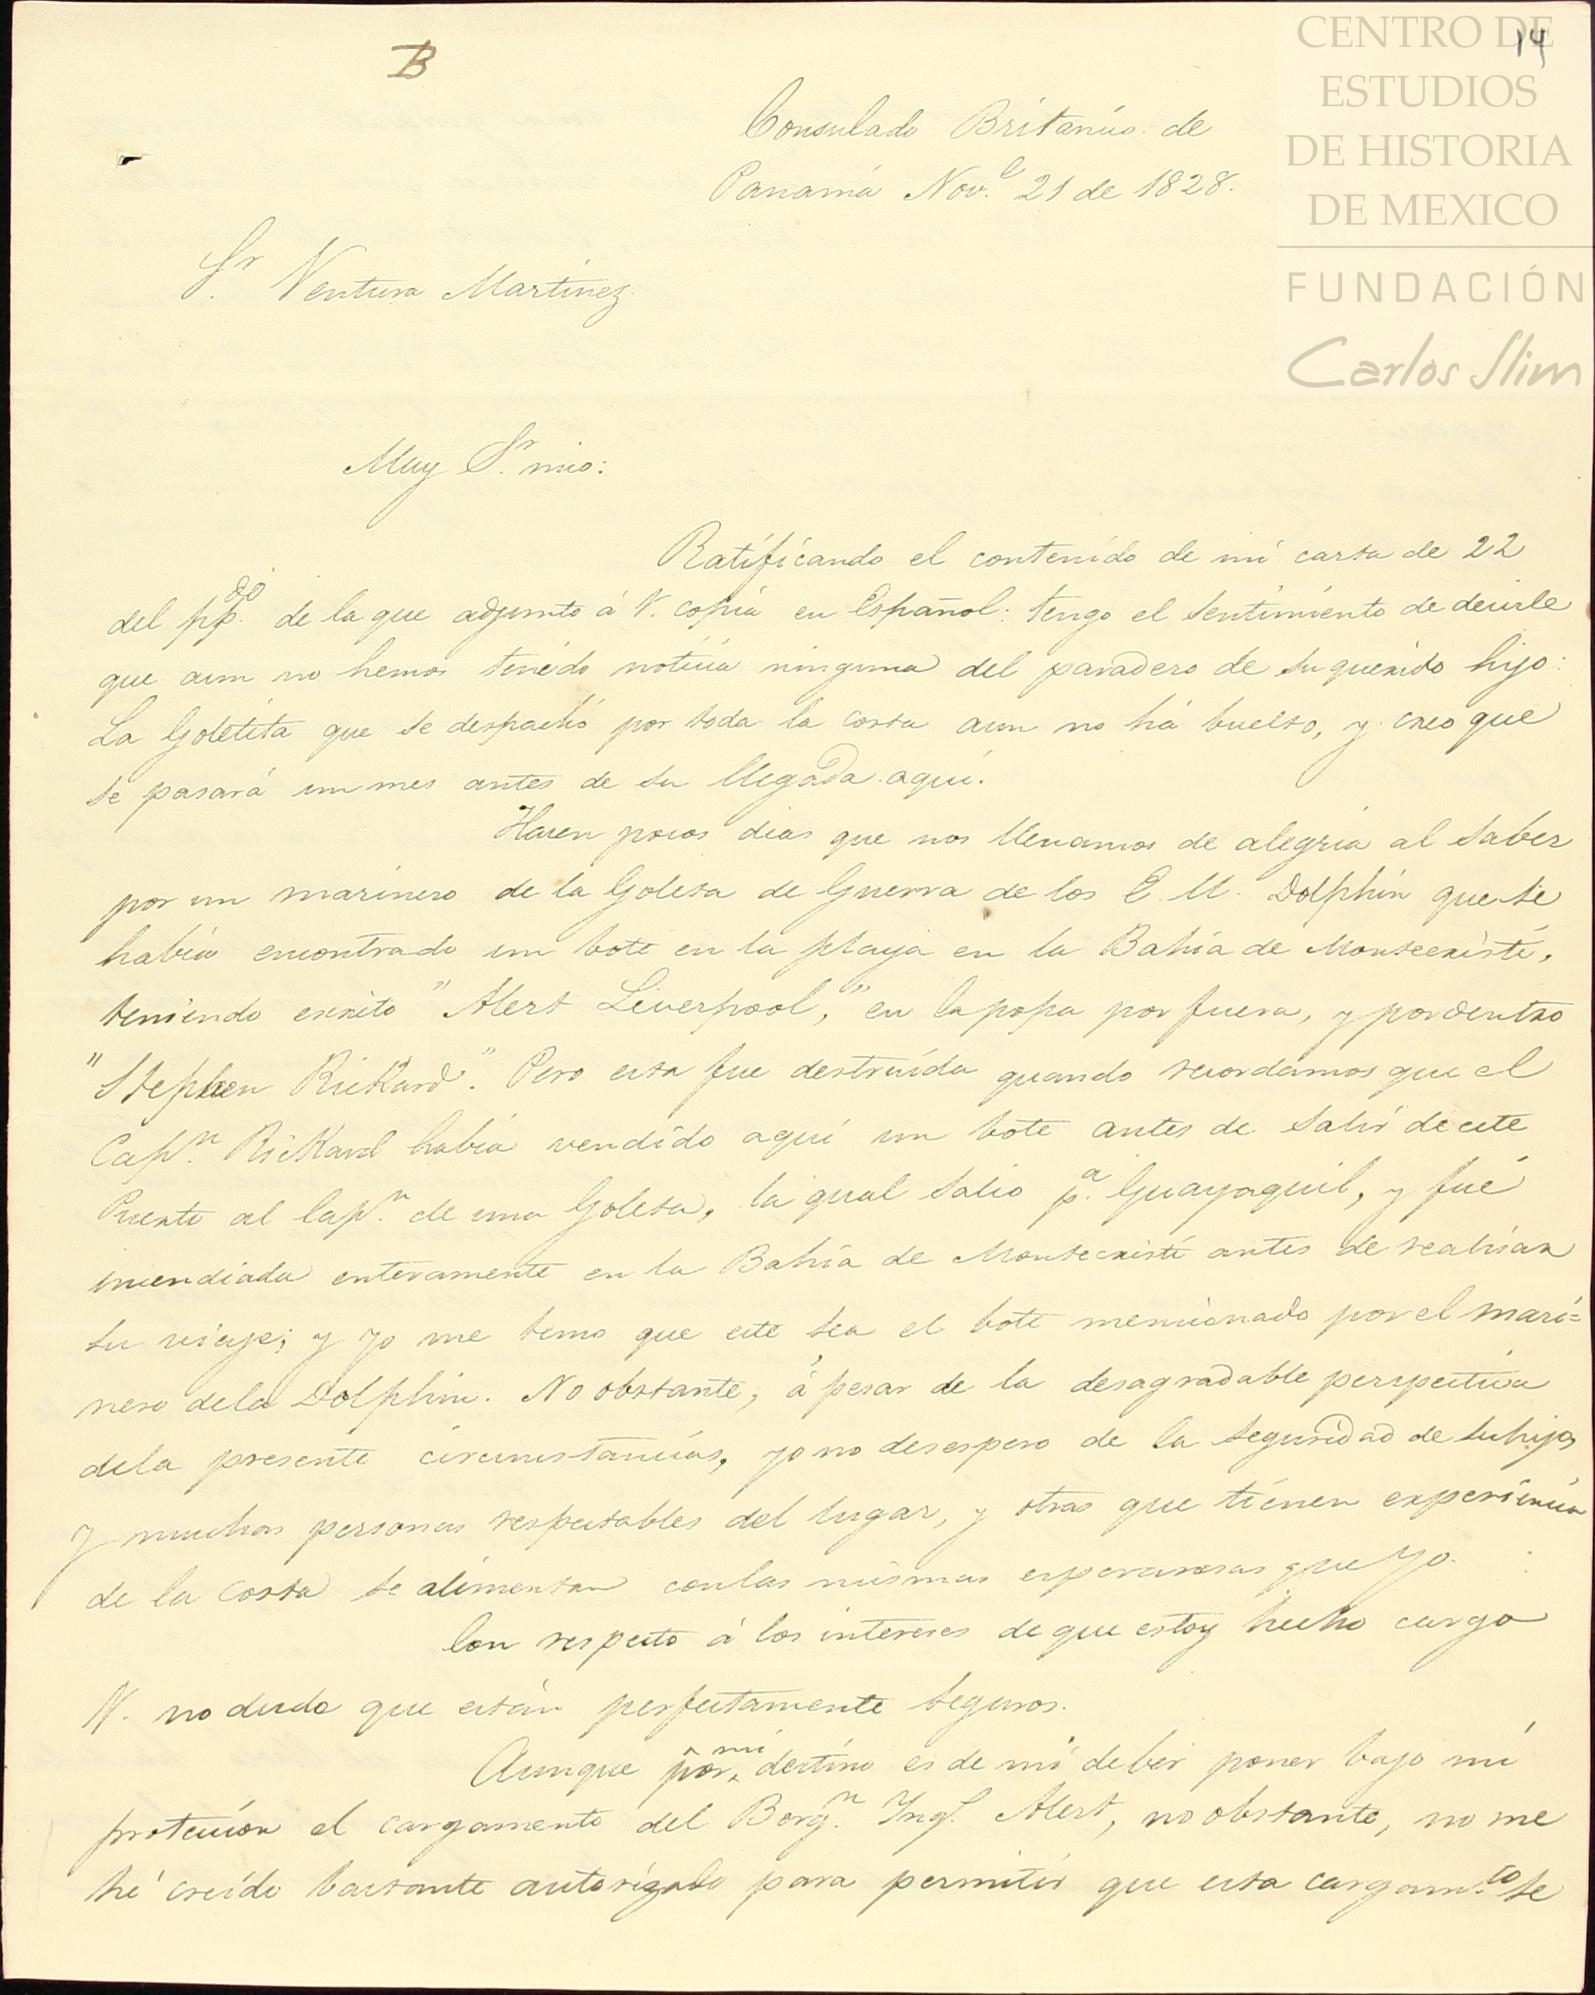 B
14
CENTRO DE
ESTUDIOS
DE HISTORIA
DE MEXICO
FUNDACIÓN
Carlos Slim
Consulado Britanico de
Panamá Nov.e 21 de 1828.
Sr. Ventura Martinez
Muy Sr. mio:
Ratificando el contenido de mi carta de 22
del pp.do de la que adjunto á V. copia en Español: tengo el sentimiento de decirle
que aun no hemos tenido noticia ninguna del paradero de su querido hijo:
La Goletita que se despachó por toda la costa aun no há buelto, y creo que
se pasará un mes antes de su llegada aquí.
Hacen pocos dias que nos llenamos de alegria al saber
por un marinero de la Goleta de Guerra de los E. U. Dolphin que se
habia encontrado un bote en la playa en la Bahia de Montecristi,
teniendo escrito "Alert Liverpool," en la popa por fuera, y por dentro
"Stephen Rickard". Pero esta fue destruida quando recordamos que el
Capn. Rickard habia vendido aqui un bote antes de salir de este
Puerto al Capn. de una Goleta, la qual salio p.a Guayaquil, y fué
incendiada enteramente en la Bahia de Montecristi antes de realisar
su viaje; y yo me temo que este sea el bote mencionado por el mari=
nero dela Dolphin. No obstante, á pesar de la desagradable perspectiva
dela presente circunstancias, yo no desespero de la seguridad de su hijo,
y muchas personas respectables del lugar, y otras que tienen experiencia
de la costa se alimentan con las mismas esperansas que yo.
Con respecto á los intereses de que estoy hecho cargo
V. no dude que están perfectamente seguros.
Aunque por mi destino es de mi deber poner bajo mi
proteccion el cargamento del Berg.n Ingl. Alert, no obstante, no me
hé creido bastante autorizado para permitir que esta cargam.to se